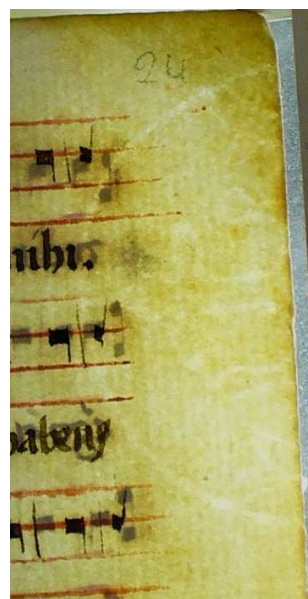 24
mihi.
habens